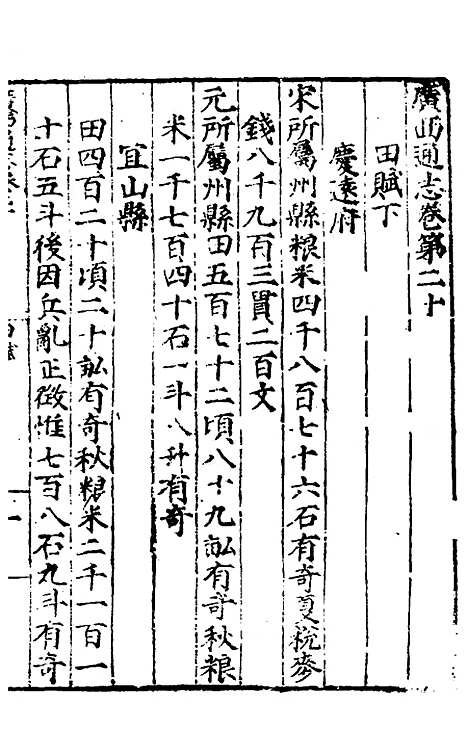 廣西通志卷第二十
田賦下
慶遠府
宋所屬州縣粮米四千八百七十六石有奇夏税麥
錢八千九百三貫二百文
元所屬州縣田五百七十二頃八十九畝有奇秋粮
米一千七百四十石一斗八升有奇
宜山縣
田四百二十頃二十畝有奇秋粮米二千一百一
十石五斗後因兵亂正徴惟七百八石九斗有奇